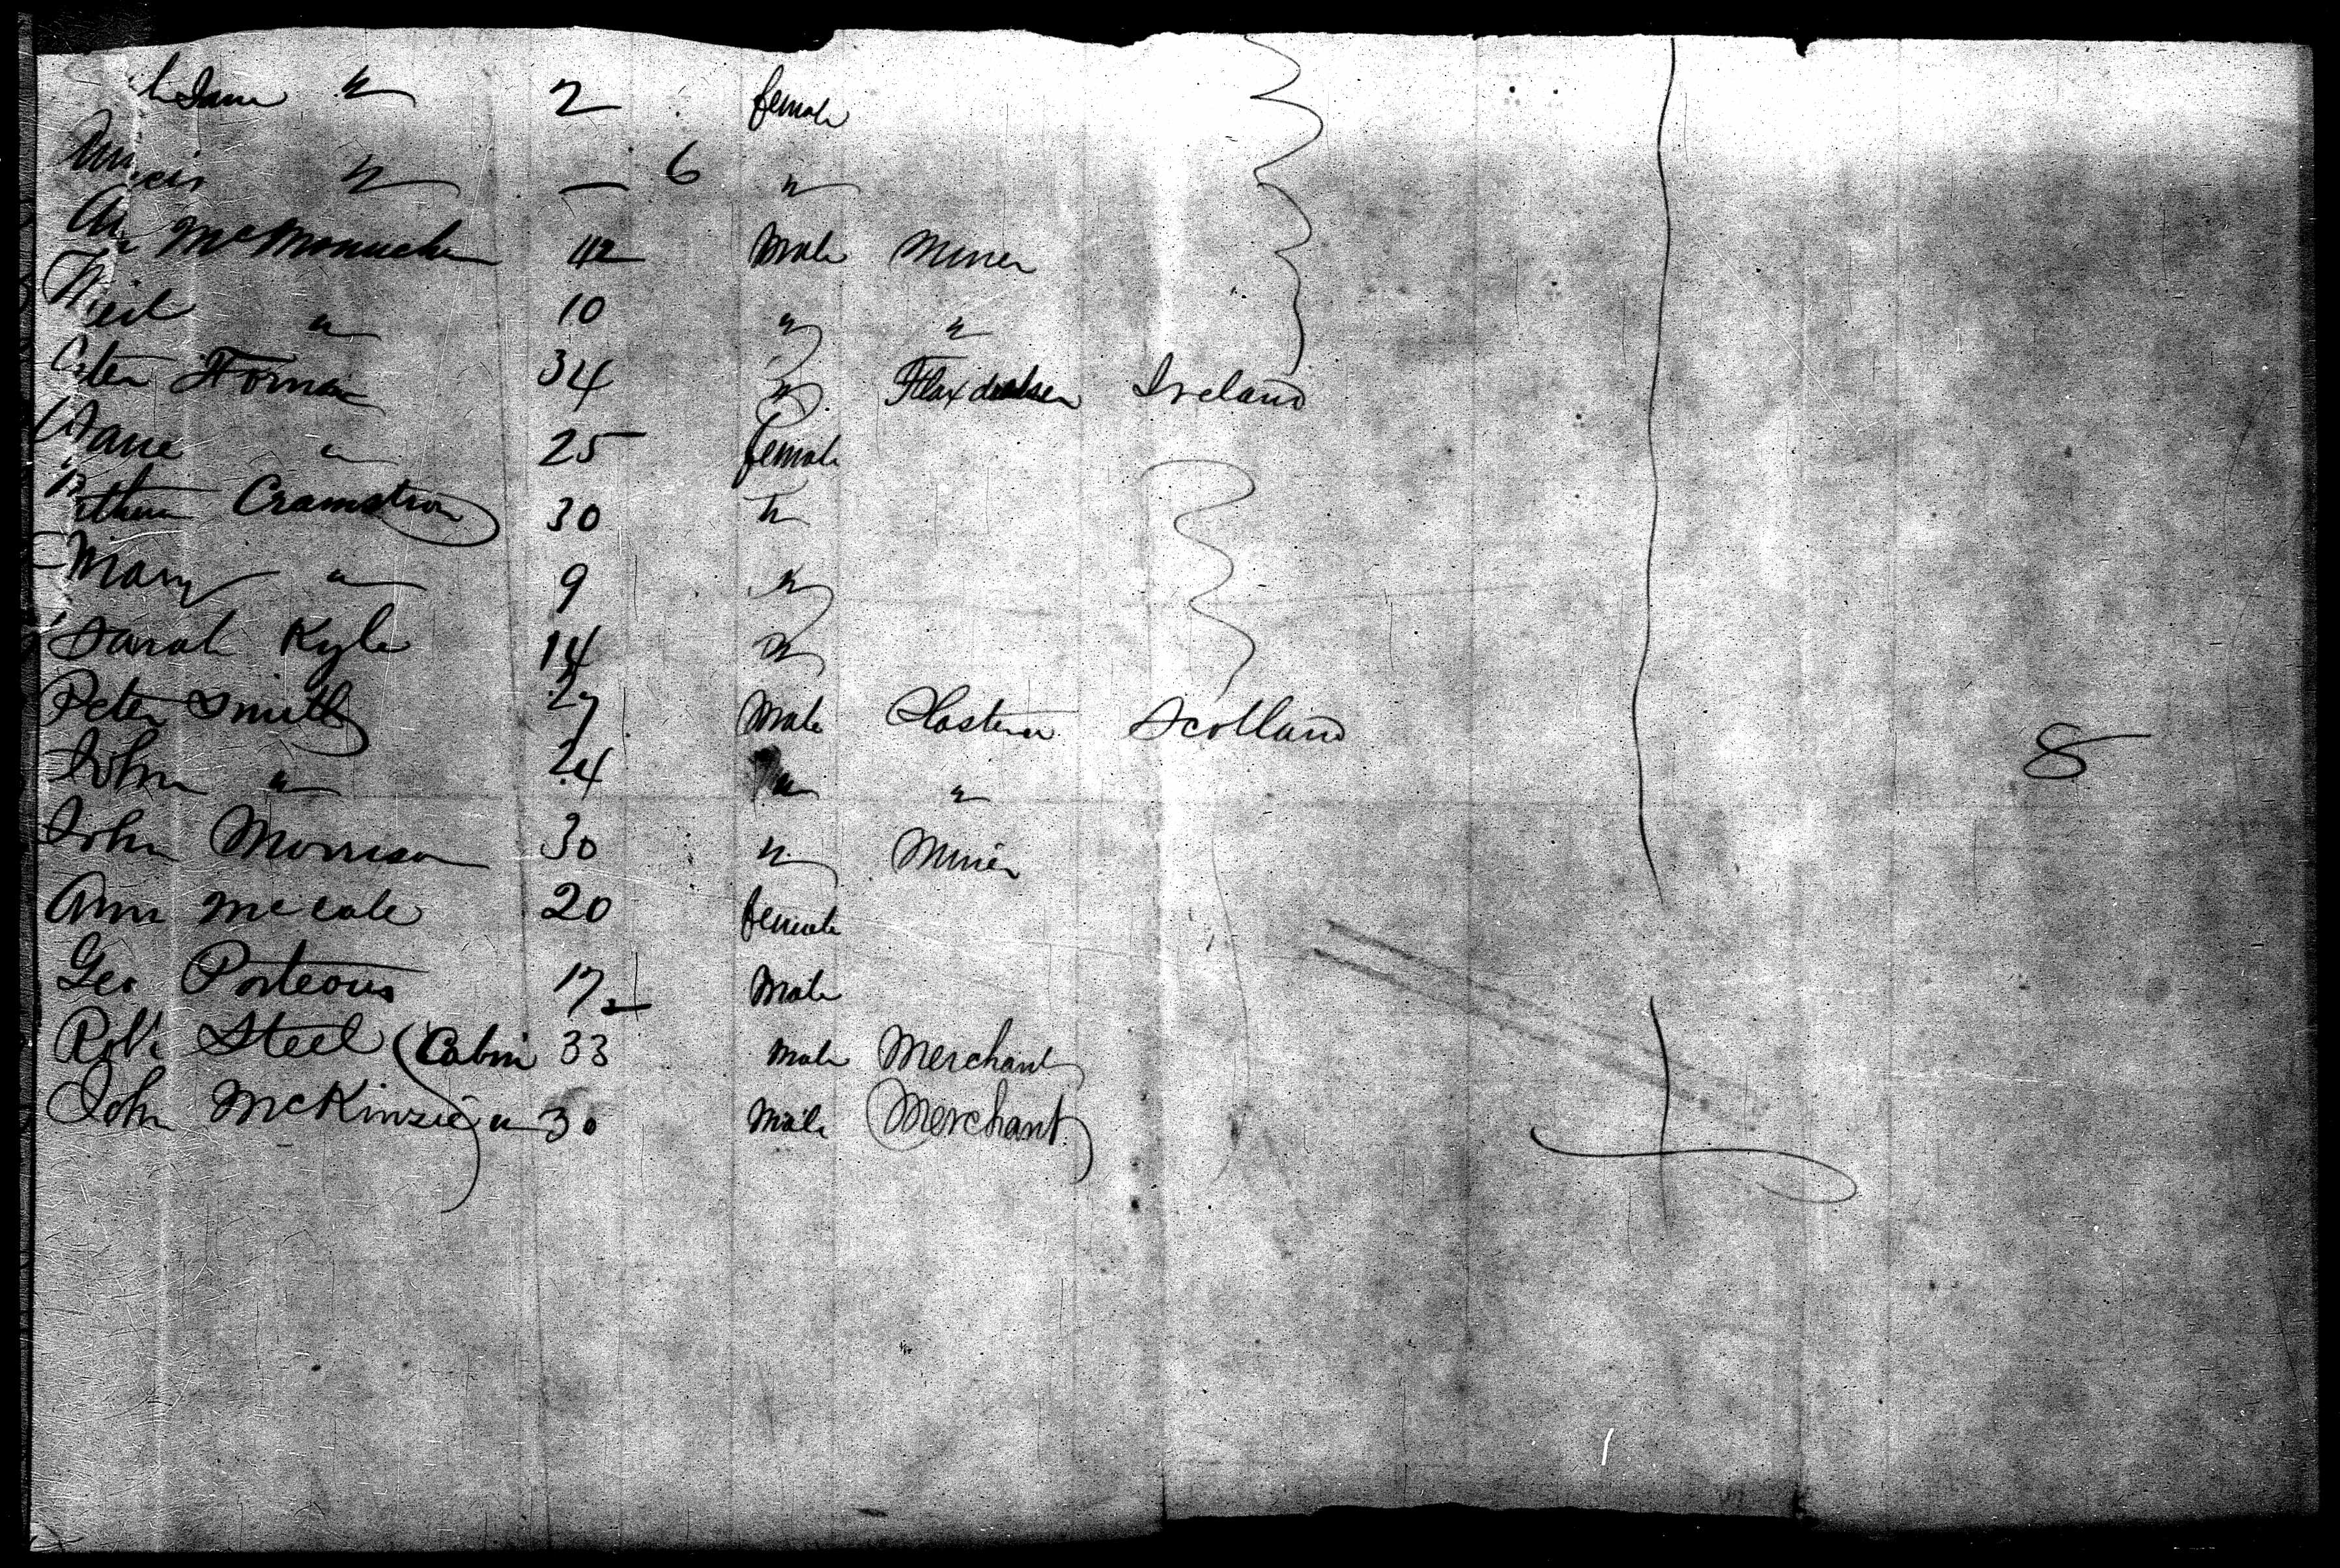 Jane " 2 female
" — 6 "
McManuchen 42 Male Miner
Neil " 10 " "
Peter 34 " Flax dresser Ireland
Jane " 25 female
Cramstron 30 "
Mary " 9 "
Sarah Kyle 14 "
Peter Smith 27 Male Plasterer Scotland
John " 24 " "
8
John Morrison 30 " Miner
Ann McCale 20 female
Geo Porteous 17 Male
Robt Steel (Cabin 33 Male Merchant
John McKinzie " 30 Male Merchant